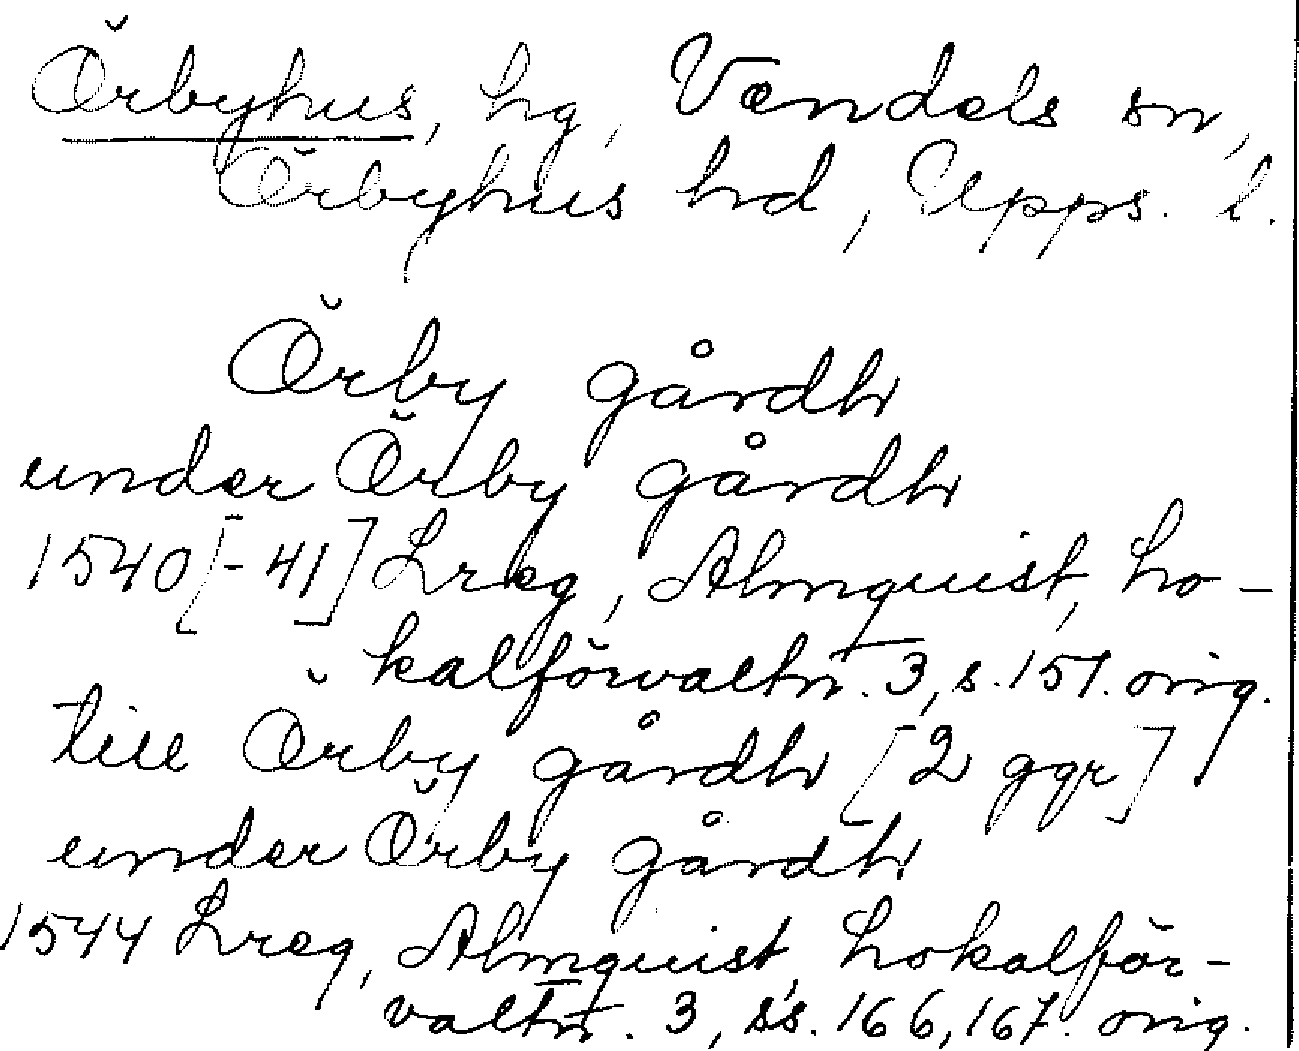 Örbyhus, hg, Vendels sn,
Örbyhus hd, Upps. l.
Örby gårdh
under Örby gårdh
1540[-41] Lreg, Almquist, Lo-
kalförvaltn. 3, s. 157. orig.
till Örby gårdh [2 ggr]
under Örby gårdh
1544 Lreg, Almquist, Lokalför-
valtn. 3, ss. 166, 167. orig.